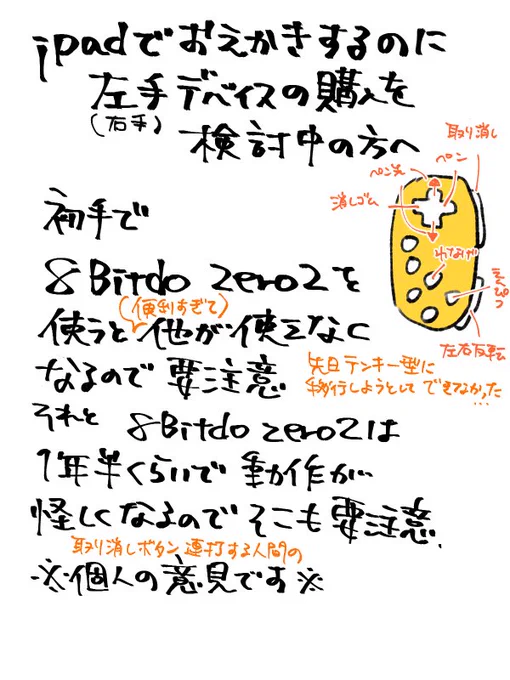 ipadでおえかきするのに
左手デバイスの購入を
(右手)
検討中の方へ
取り消し
ペン
ペン大
消しゴム
なげなわ
えんぴつ
左右反転
初手で
8Bitdo zero2を
(便利すぎて)
使うと他が使えなく
なるので要注意
先日テンキー型に
移行しようとしてできなかった…
それと 8Bitdo zero2は
1年半くらいで動作が
怪しくなるのでそこも要注意
取り消しボタン連打する人間の
※個人の意見です※